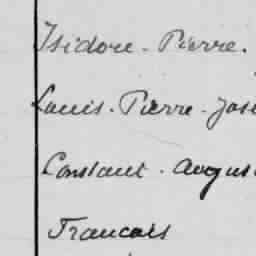 Isidore - Pierre.
Louis - Pierre - Jose
Constant - Augus
Francois